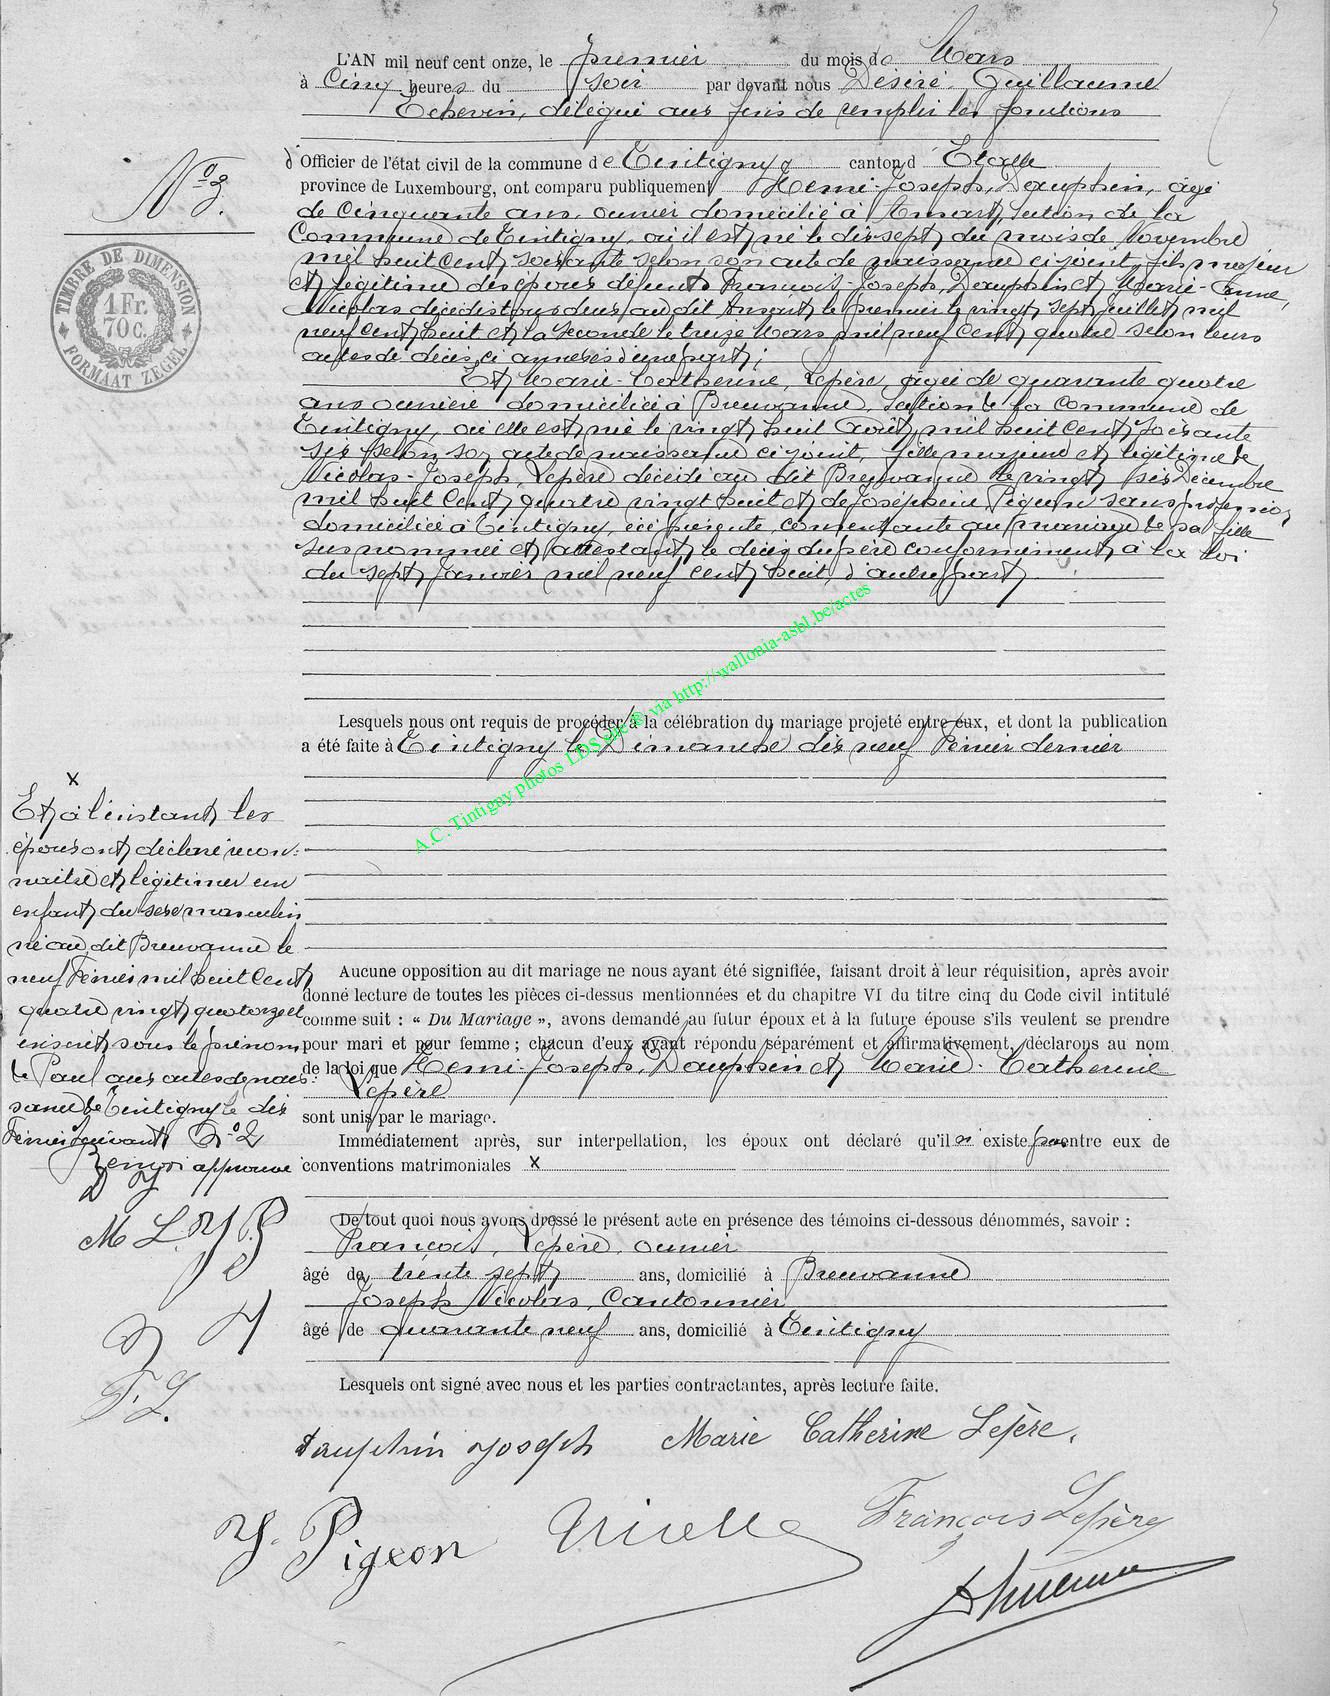 L'AN mil neuf cent onze, le premier du mois de Mars
à Cinq heures du soir par devant nous Désiré Guillaume
Echevin, délégué aux fins de remplir les fonctions
d'Officier de l'état civil de la commune de Tintigny canton d'Etalle
province de Luxembourg, ont comparu publiquement Henri-Joseph, Dauphin, âgé
de Cinquante ans, ouvrier domicilié à Ansart, section de la
Commune de Tintigny, où il est né le dix-sept du mois de Novembre
mil huit cent soixante selon son acte de naissance ci joint, fils majeur
et légitime des époux défunts François-Joseph, Dauphin et Marie-Anne,
Nicolas décédés tous deux au dit Ansart, le premier le vingt sept Juillet mil
neuf cent huit et la seconde le treize Mars mil neuf cent quatre selon leurs
actes de décès ci annexés d'une part;
Et Marie-Catherine, Lepère, âgée de quarante quatre
ans ouvrière domiciliée à Breuvanne, section de la Commune de
Tintigny, où elle est née le vingt huit Août mil huit cent soixante
six selon son acte de naissance ci joint, fille majeure et légitime de
Nicolas-Joseph, Lepère décédé au dit Breuvanne le vingt six Décembre
mil huit cent quatre vingt huit et de Joséphine Pigeon sans profession
domiciliée à Tintigny, ici présente, consentante au mariage de sa fille
sus nommée et attestant le décès du père conformément à la loi
du sept Janvier mil neuf cent huit, d'autre part.
Lesquels nous ont requis de procéder à la célébration du mariage projeté entre eux, et dont la publication
a été faite à Tintigny le Dimanche dix neuf Février dernier
A.C. Tintigny photos LDS site © via http://wallonia-asbl.be/actes
Aucune opposition au dit mariage ne nous ayant été signifiée, faisant droit à leur réquisition, après avoir
donné lecture de toutes les pièces ci-dessus mentionnées et du chapitre VI du titre cinq du Code civil intitulé
comme suit : « Du Mariage », avons demandé au futur époux et à la future épouse s'ils veulent se prendre
pour mari et pour femme ; chacun d'eux ayant répondu séparément et affirmativement, déclarons au nom
de la loi que Henri-Joseph, Dauphin et Marie-Catherine
Lepère
sont unis par le mariage.
Immédiatement après, sur interpellation, les époux ont déclaré qu'il n'existe pas entre eux de
conventions matrimoniales x
De tout quoi nous avons dressé le présent acte en présence des témoins ci-dessous dénommés, savoir :
François, Lepère, ouvrier
âgé de trente sept ans, domicilié à Breuvanne
Joseph Nicolas, Cantonnier
âgé de quarante neuf ans, domicilié à Tintigny
Lesquels ont signé avec nous et les parties contractantes, après lecture faite.
Dauphin Joseph Marie Catherine Lepère.
J. Pigeon François Lepère
No 3.
TIMBRE DE DIMENSION
1 Fr.
70 c.
FORMAAT ZEGEL
x
Et à l'instant les
époux ont déclaré recon-
naître et légitimer un
enfant du sexe masculin
né au dit Breuvanne le
neuf Février mil huit cent
quatre vingt quatorze et
inscrit sous le prénom
de Paul aux actes de nais-
sance de Tintigny le dix
Février suivant No 2
Renvoi approuvé
D J
M L J P
F. L.